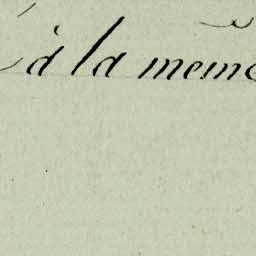 à la meme